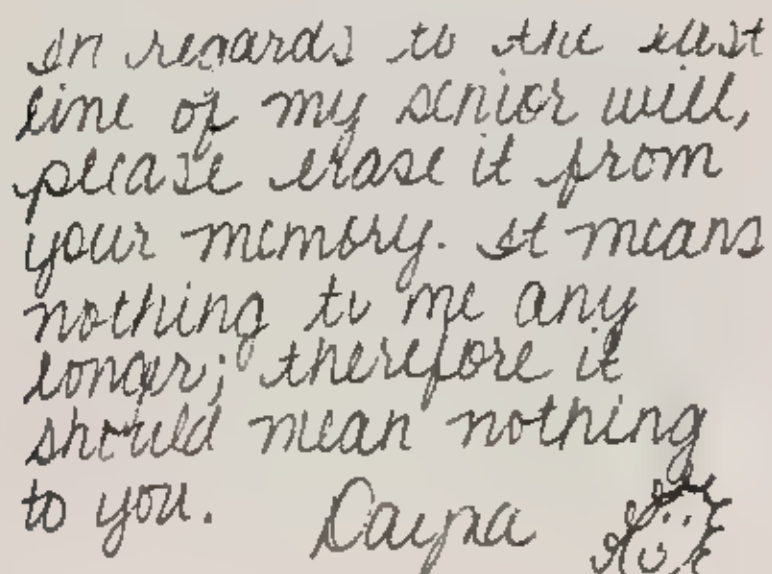 In regards to the last
line of my senior will,
please erase it from
your memory. It means
nothing to me any
longer; therefore it
should mean nothing
to you. Dayna